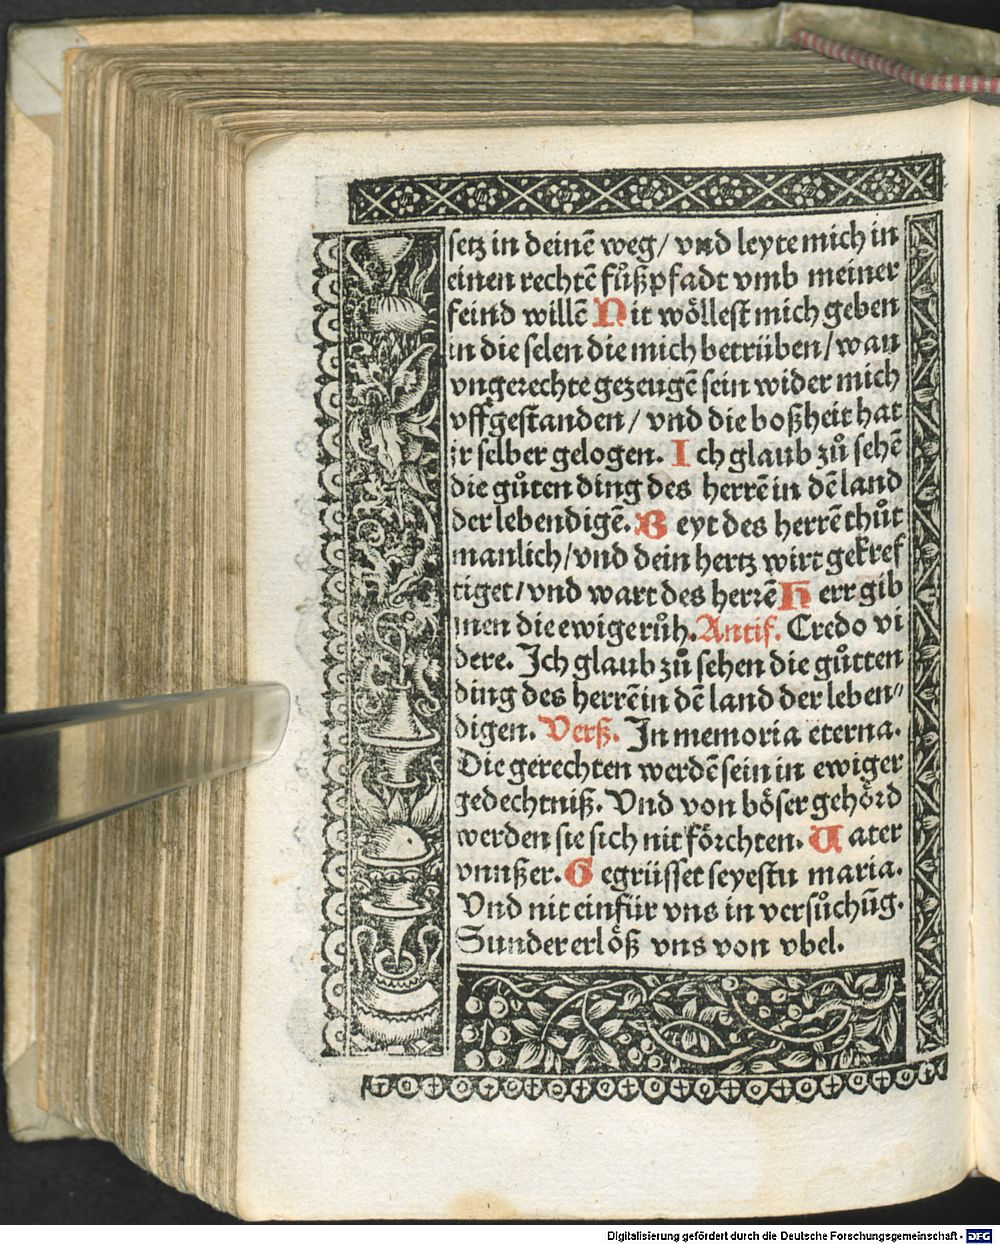 setz in deinē weg/ vnd leyte mich in
einen rechtē fůßpfadt vmb meiner
feind willē Nit wöllest mich geben
in die selen die mich betrüben/wan
vngerechte gezeugē sein wider mich
vffgestanden/ vnd die boßheit hat
ir selber gelogen. Ich glaub zů sehē
die gůten ding des herrē in dē land
der lebendigē. Beyt des herrē thůt
manlich/vnd dein hertz wirt gekref
tiget/vnd wart des herrē Herr gib
inen die ewige růh. Antif. Credo vi
dere. Ich glaub zů sehen die gůtten
ding des herrē in dē land der leben〃
digen. Verß. In memoria eterna.
Die gerechten werdē sein in ewiger
gedechtniß. Vnd von böser gehörd
werden sie sich nit förchten. Vater
vnnßer. Gegrüsset seyestu maria.
Vnd nit einfür vns in versůchūg.
Sunder erlöß vns von vbel.
Digitalisierung gefördert durch die Deutsche Forschungsgemeinschaft - DFG